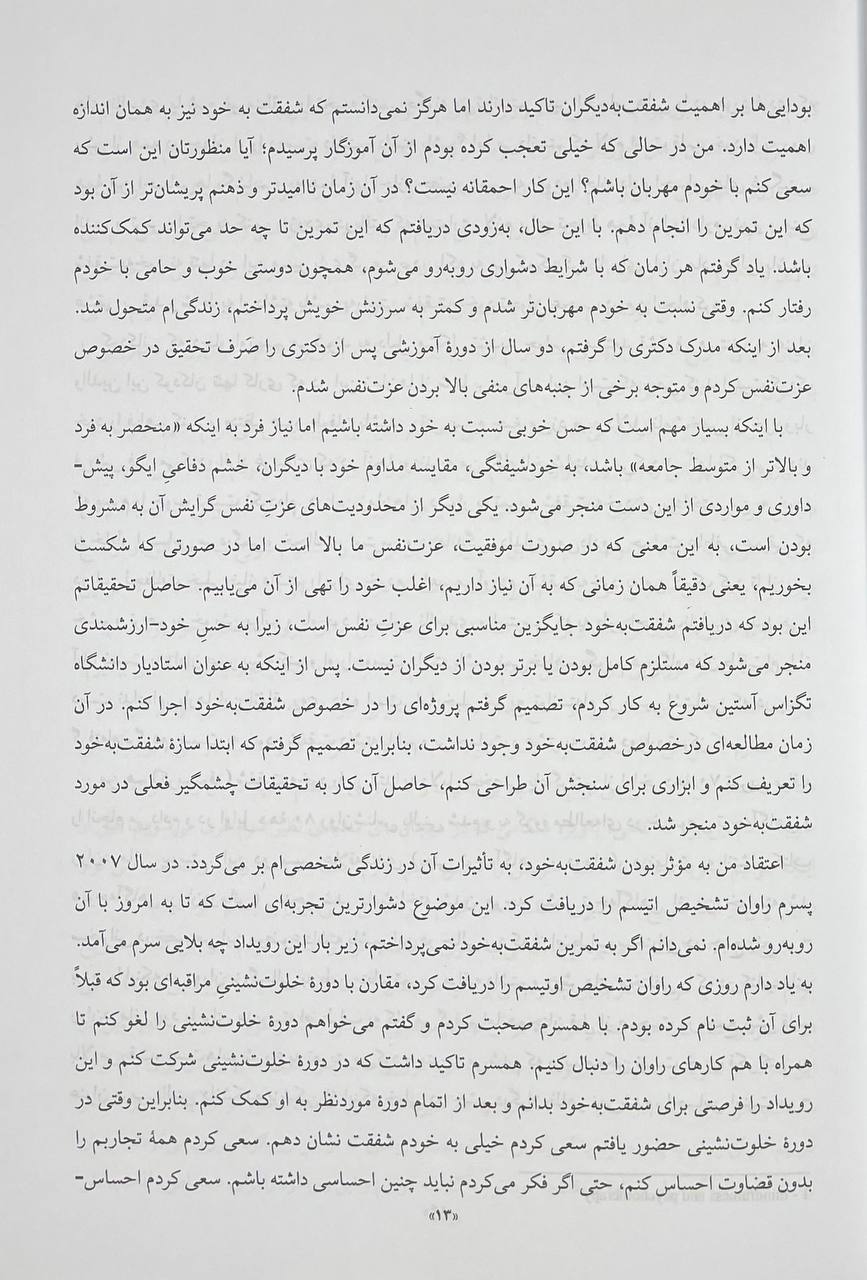 بودایی‌ها بر اهمیت شفقت‌به‌دیگران تاکید دارند اما هرگز نمی‌دانستم که شفقت به خود نیز به همان اندازه
اهمیت دارد. من در حالی که خیلی تعجب کرده بودم از آن آموزگار پرسیدم؛ آیا منظورتان این است که
سعی کنم با خودم مهربان باشم؟ این کار احمقانه نیست؟ در آن زمان ناامیدتر و ذهنم پریشان‌تر از آن بود
که این تمرین را انجام دهم. با این حال، به‌زودی دریافتم که این تمرین تا چه حد می‌تواند کمک‌کننده
باشد. یاد گرفتم هر زمان که با شرایط دشواری روبه‌رو می‌شوم، همچون دوستی خوب و حامی با خودم
رفتار کنم. وقتی نسبت به خودم مهربان‌تر شدم و کمتر به سرزنش خویش پرداختم، زندگی‌ام متحول شد.
بعد از اینکه مدرک دکتری را گرفتم، دو سال از دورهٔ آموزشی پس از دکتری را صَرف تحقیق در خصوص
عزت‌نفس کردم و متوجه برخی از جنبه‌های منفی بالا بردن عزت‌نفس شدم.
با اینکه بسیار مهم است که حس خوبی نسبت به خود داشته باشیم اما نیاز فرد به اینکه «منحصر به فرد
و بالاتر از متوسط جامعه» باشد، به خودشیفتگی، مقایسه مداوم خود با دیگران، خشم دفاعیِ ایگو، پیش-
داوری و مواردی از این دست منجر می‌شود. یکی دیگر از محدودیت‌های عزتِ نفس گرایش آن به مشروط
بودن است، به این معنی که در صورت موفقیت، عزت‌نفس ما بالا است اما در صورتی که شکست
بخوریم، یعنی دقیقاً همان زمانی که به آن نیاز داریم، اغلب خود را تهی از آن می‌یابیم. حاصل تحقیقاتم
این بود که دریافتم شفقت‌به‌خود جایگزین مناسبی برای عزتِ نفس است، زیرا به حسِ خود-ارزشمندی
منجر می‌شود که مستلزم کامل بودن یا برتر بودن از دیگران نیست. پس از اینکه به عنوان استادیار دانشگاه
تگزاس آستین شروع به کار کردم، تصمیم گرفتم پروژه‌ای را در خصوص شفقت‌به‌خود اجرا کنم. در آن
زمان مطالعه‌ای درخصوص شفقت‌به‌خود وجود نداشت، بنابراین تصمیم گرفتم که ابتدا سازهٔ شفقت‌به‌خود
را تعریف کنم و ابزاری برای سنجش آن طراحی کنم، حاصل آن کار به تحقیقات چشمگیر فعلی در مورد
شفقت‌به‌خود منجر شد.
اعتقاد من به مؤثر بودن شفقت‌به‌خود، به تأثیرات آن در زندگی شخصی‌ام بر می‌گردد. در سال ۲۰۰۷
پسرم راوان تشخیص اتیسم را دریافت کرد. این موضوع دشوارترین تجربه‌ای است که تا به امروز با آن
روبه‌رو شده‌ام. نمی‌دانم اگر به تمرین شفقت‌به‌خود نمی‌پرداختم، زیر بار این رویداد چه بلایی سرم می‌آمد.
به یاد دارم روزی که راوان تشخیص اوتیسم را دریافت کرد، مقارن با دورهٔ خلوت‌نشینیِ مراقبه‌ای بود که قبلاً
برای آن ثبت نام کرده بودم. با همسرم صحبت کردم و گفتم می‌خواهم دورهٔ خلوت‌نشینی را لغو کنم تا
همراه با هم کارهای راوان را دنبال کنیم. همسرم تاکید داشت که در دورهٔ خلوت‌نشینی شرکت کنم و این
رویداد را فرصتی برای شفقت‌به‌خود بدانم و بعد از اتمام دورهٔ موردنظر به او کمک کنم. بنابراین وقتی در
دورهٔ خلوت‌نشینی حضور یافتم سعی کردم خیلی به خودم شفقت نشان دهم. سعی کردم همهٔ تجاربم را
بدون قضاوت احساس کنم، حتی اگر فکر می‌کردم نباید چنین احساسی داشته باشم. سعی کردم احساس-
«۱۳»